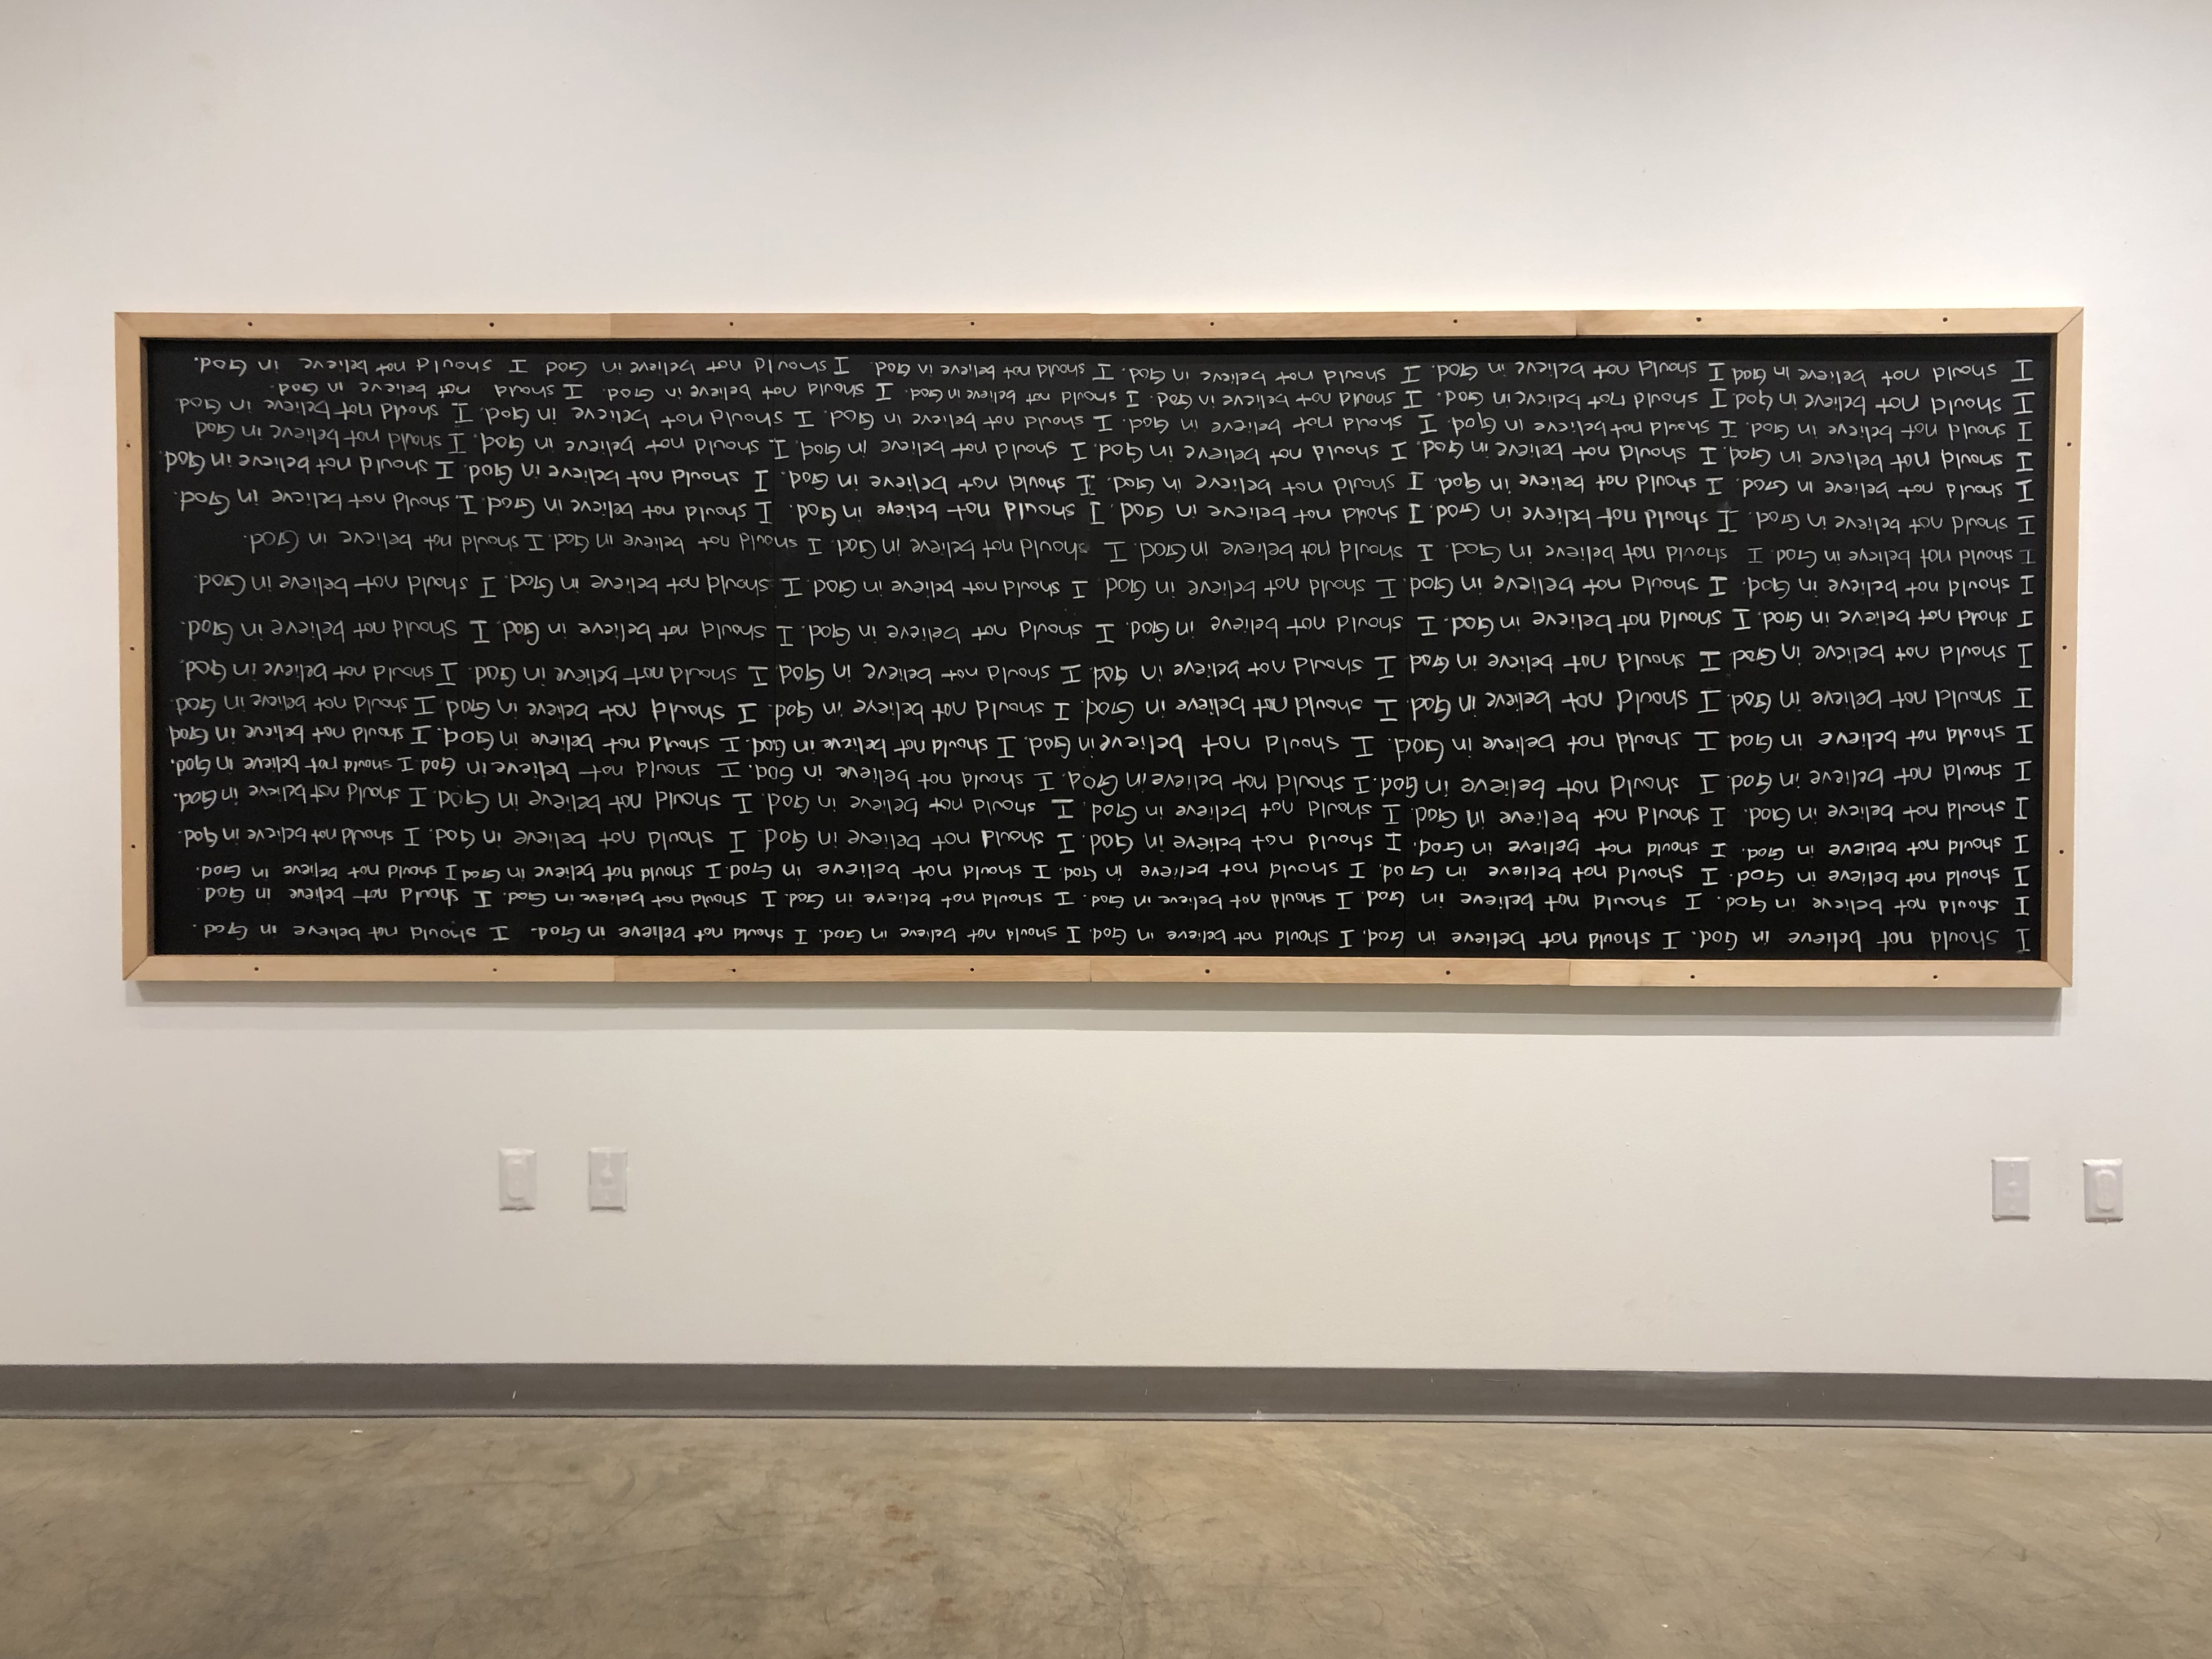 I should not believe in God. I should not believe in God. I should not believe in God. I should not believe in God. I should not believe in God. I should not believe in God.
I should not believe in God. I should not believe in God. I should not believe in God. I should not believe in God. I should not believe in God. I should not believe in God
I should not believe in God. I should not believe in God. I should not believe in God. I should not believe in God. I should not believe in God I should not believe in God.
I should not believe in God. I should not believe in God. I should not believe in God. I should not believe in God. I should not believe in God. I should not believe in God.
I should not believe in God. I should not believe in God. I should not believe in God. I should not believe in God. I should not believe in God. I should not believe in God.
I should not believe in God. I should not believe in God. I should not believe in God. I should not believe in God. I should not believe in God I should not believe in God.
I should not believe in God I should not believe in God. I should not believe in God. I should not believe in God. I should not believe in God. I should not believe in God
I should not believe in God. I should not believe in God. I should not believe in God. I should not believe in God. I should not believe in God I should not believe in God.
I should not believe in God. I should not believe in God I should not believe in God. I should not believe in God. I should not believe in God. I should not believe in God.
I should not believe in God. I should not believe in God. I should not believe in God. I should not believe in God. I should not believe in God. I should not believe in God.
I should not believe in God. I should not believe in God. I should not believe in God I should not believe in God. I should not believe in God. I should not believe in God.
I should not believe in God I should not believe in God. I should not believe in God. I should not believe in God. I should not believe in God. I should not believe in God.
I should not believe in God. I should not believe in God. I should not believe in God. I should not believe in God. I should not believe in God. I should not believe in God.
I should not believe in God. I should not believe in God. I should not believe in God. I should not believe in God. I should not believe in God. I should not believe in God.
I should not believe in God. I should not believe in God. I should not believe in God. I should not believe in God. I should not believe in God. I should not believe in God
I should not believe in God. I should not believe in God. I should not believe in God. I should not believe in God. I should not believe in God. I should not believe in God.
I should not believe in God. I should not believe in God. I should not believe in God. I should not believe in God. I should not believe in God. I should not believe in God.
I should not believe in God I should not believe in God. I should not believe in God. I should not believe in God. I should not believe in God I should not believe in God.